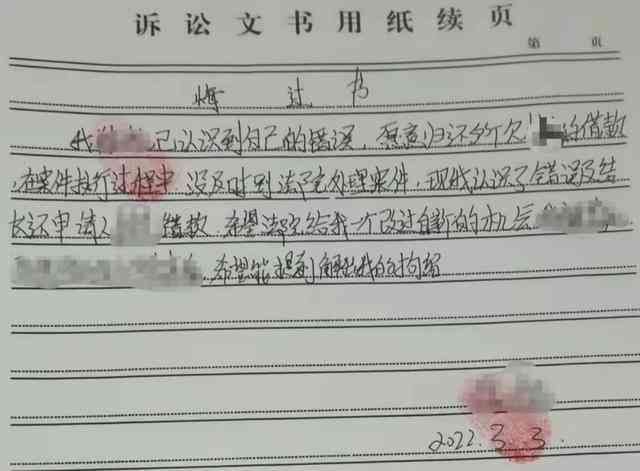 诉讼文书用纸续页
第 页
悔过书
我 已认识到自己的错误，愿意归还所欠 的借款
，在案件执行过程中，没及时到法院处理案件，现我认识了错误及结
长还申请人 借款，希望法院给我一个改过自新的机会
，希望能 到解 我的拘留
2022.3.3.